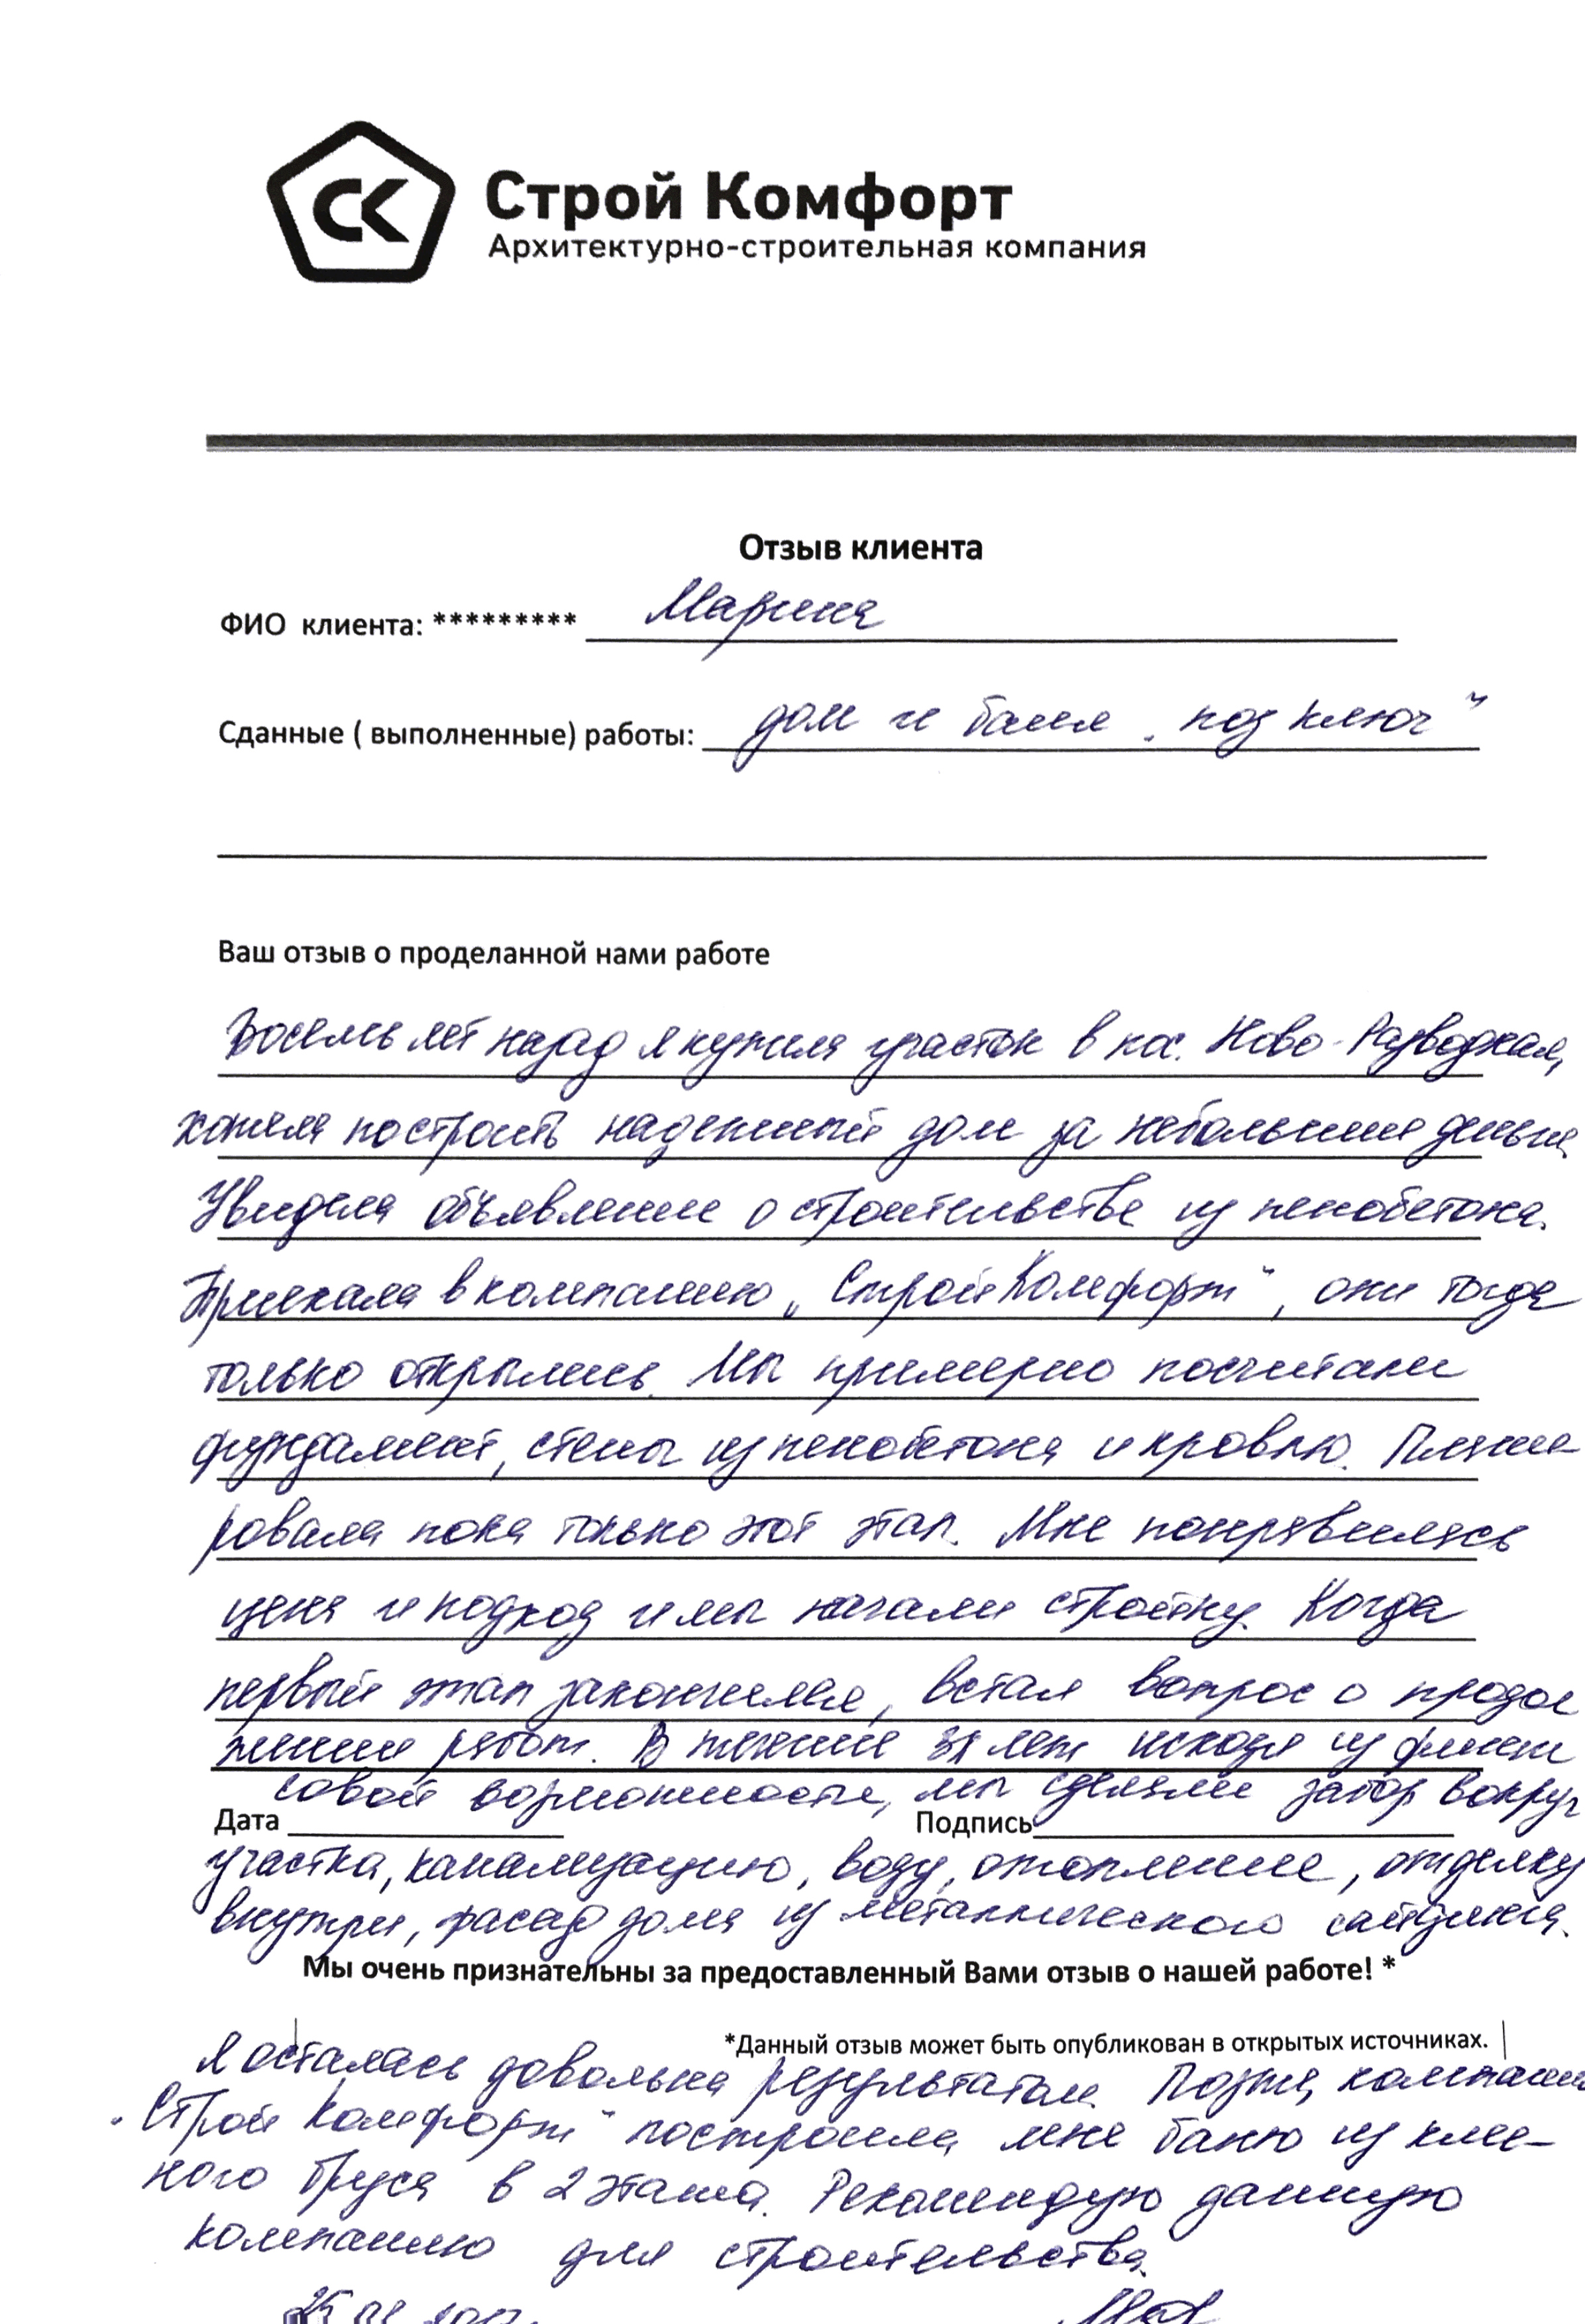 СК
Строй Комфорт
Архитектурно-строительная компания
Отзыв клиента
ФИО клиента: ********* Марина
Сданные ( выполненные) работы: дом и баня „под ключ“
Ваш отзыв о проделанной нами работе
Восемь лет назад я купила участок в пос. Ново-Разводная,
хотела построить надежный дом за небольшие деньги
Увидела объявление о строительстве из пенобетона.
Приехала в компанию „Строй Комфорт“, они тогда
только открылись. Мы примерно посчитали
фундамент, стены из пенобетона и кровлю. Плани-
ровала пока только этот этап. Мне понравилась
цена и подход и мы начали стройку. Когда
первый этап закончился, встал вопрос о продол
жении работ. В течение 3х лет исходя из финан
совой возможности, мы сделали забор вокруг
Дата Подпись
участка, канализацию, воду, отопление, отделку
внутри, фасад дома из металлического сайдинга.
Мы очень признательны за предоставленный Вами отзыв о нашей работе! *
*Данный отзыв может быть опубликован в открытых источниках.
Я осталась довольна результатом. Позже, компания
„Строй Комфорт“ построила мне баню из клее-
ного бруса в 2 этажа. Рекомендую данную
компанию для строительства.